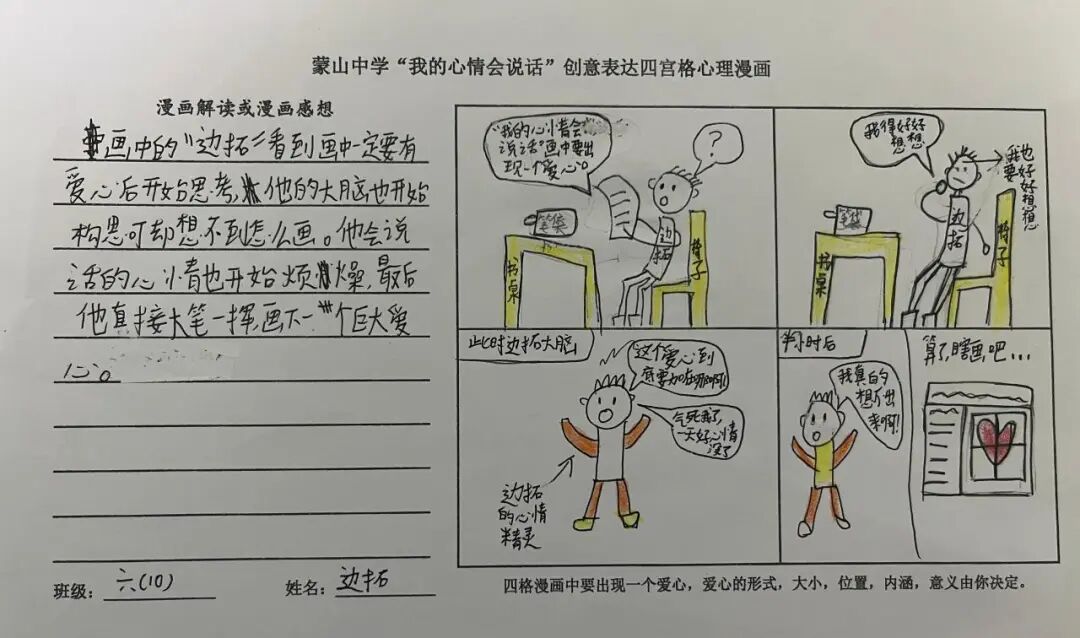 蒙山中学“我的心情会说话”创意表达四宫格心理漫画
漫画解读或漫画感想
画中的“边拓”看到画中一定要有
爱心后开始思考,他的大脑也开始
构思可却想不到怎么画。他会说
话的心情也开始烦燥,最后
他直接大笔一挥,画下一个巨大爱
心。
班级：六(10)
姓名：边拓
“我的心情会
说话”画中要出
现一个爱心。
？
笔袋
边拓
书桌
椅子
我得好好
想想
我也
要好好想想
笔袋
边拓
书桌
椅子
此时边拓大脑
这个爱心到
底要加在哪啊!
气死我了,
一天好心情
没了
边拓
的心情
精灵
半小时后
我真的
想不出
来啊!
算了,瞎画吧...
四格漫画中要出现一个爱心，爱心的形式，大小，位置，内涵，意义由你决定。